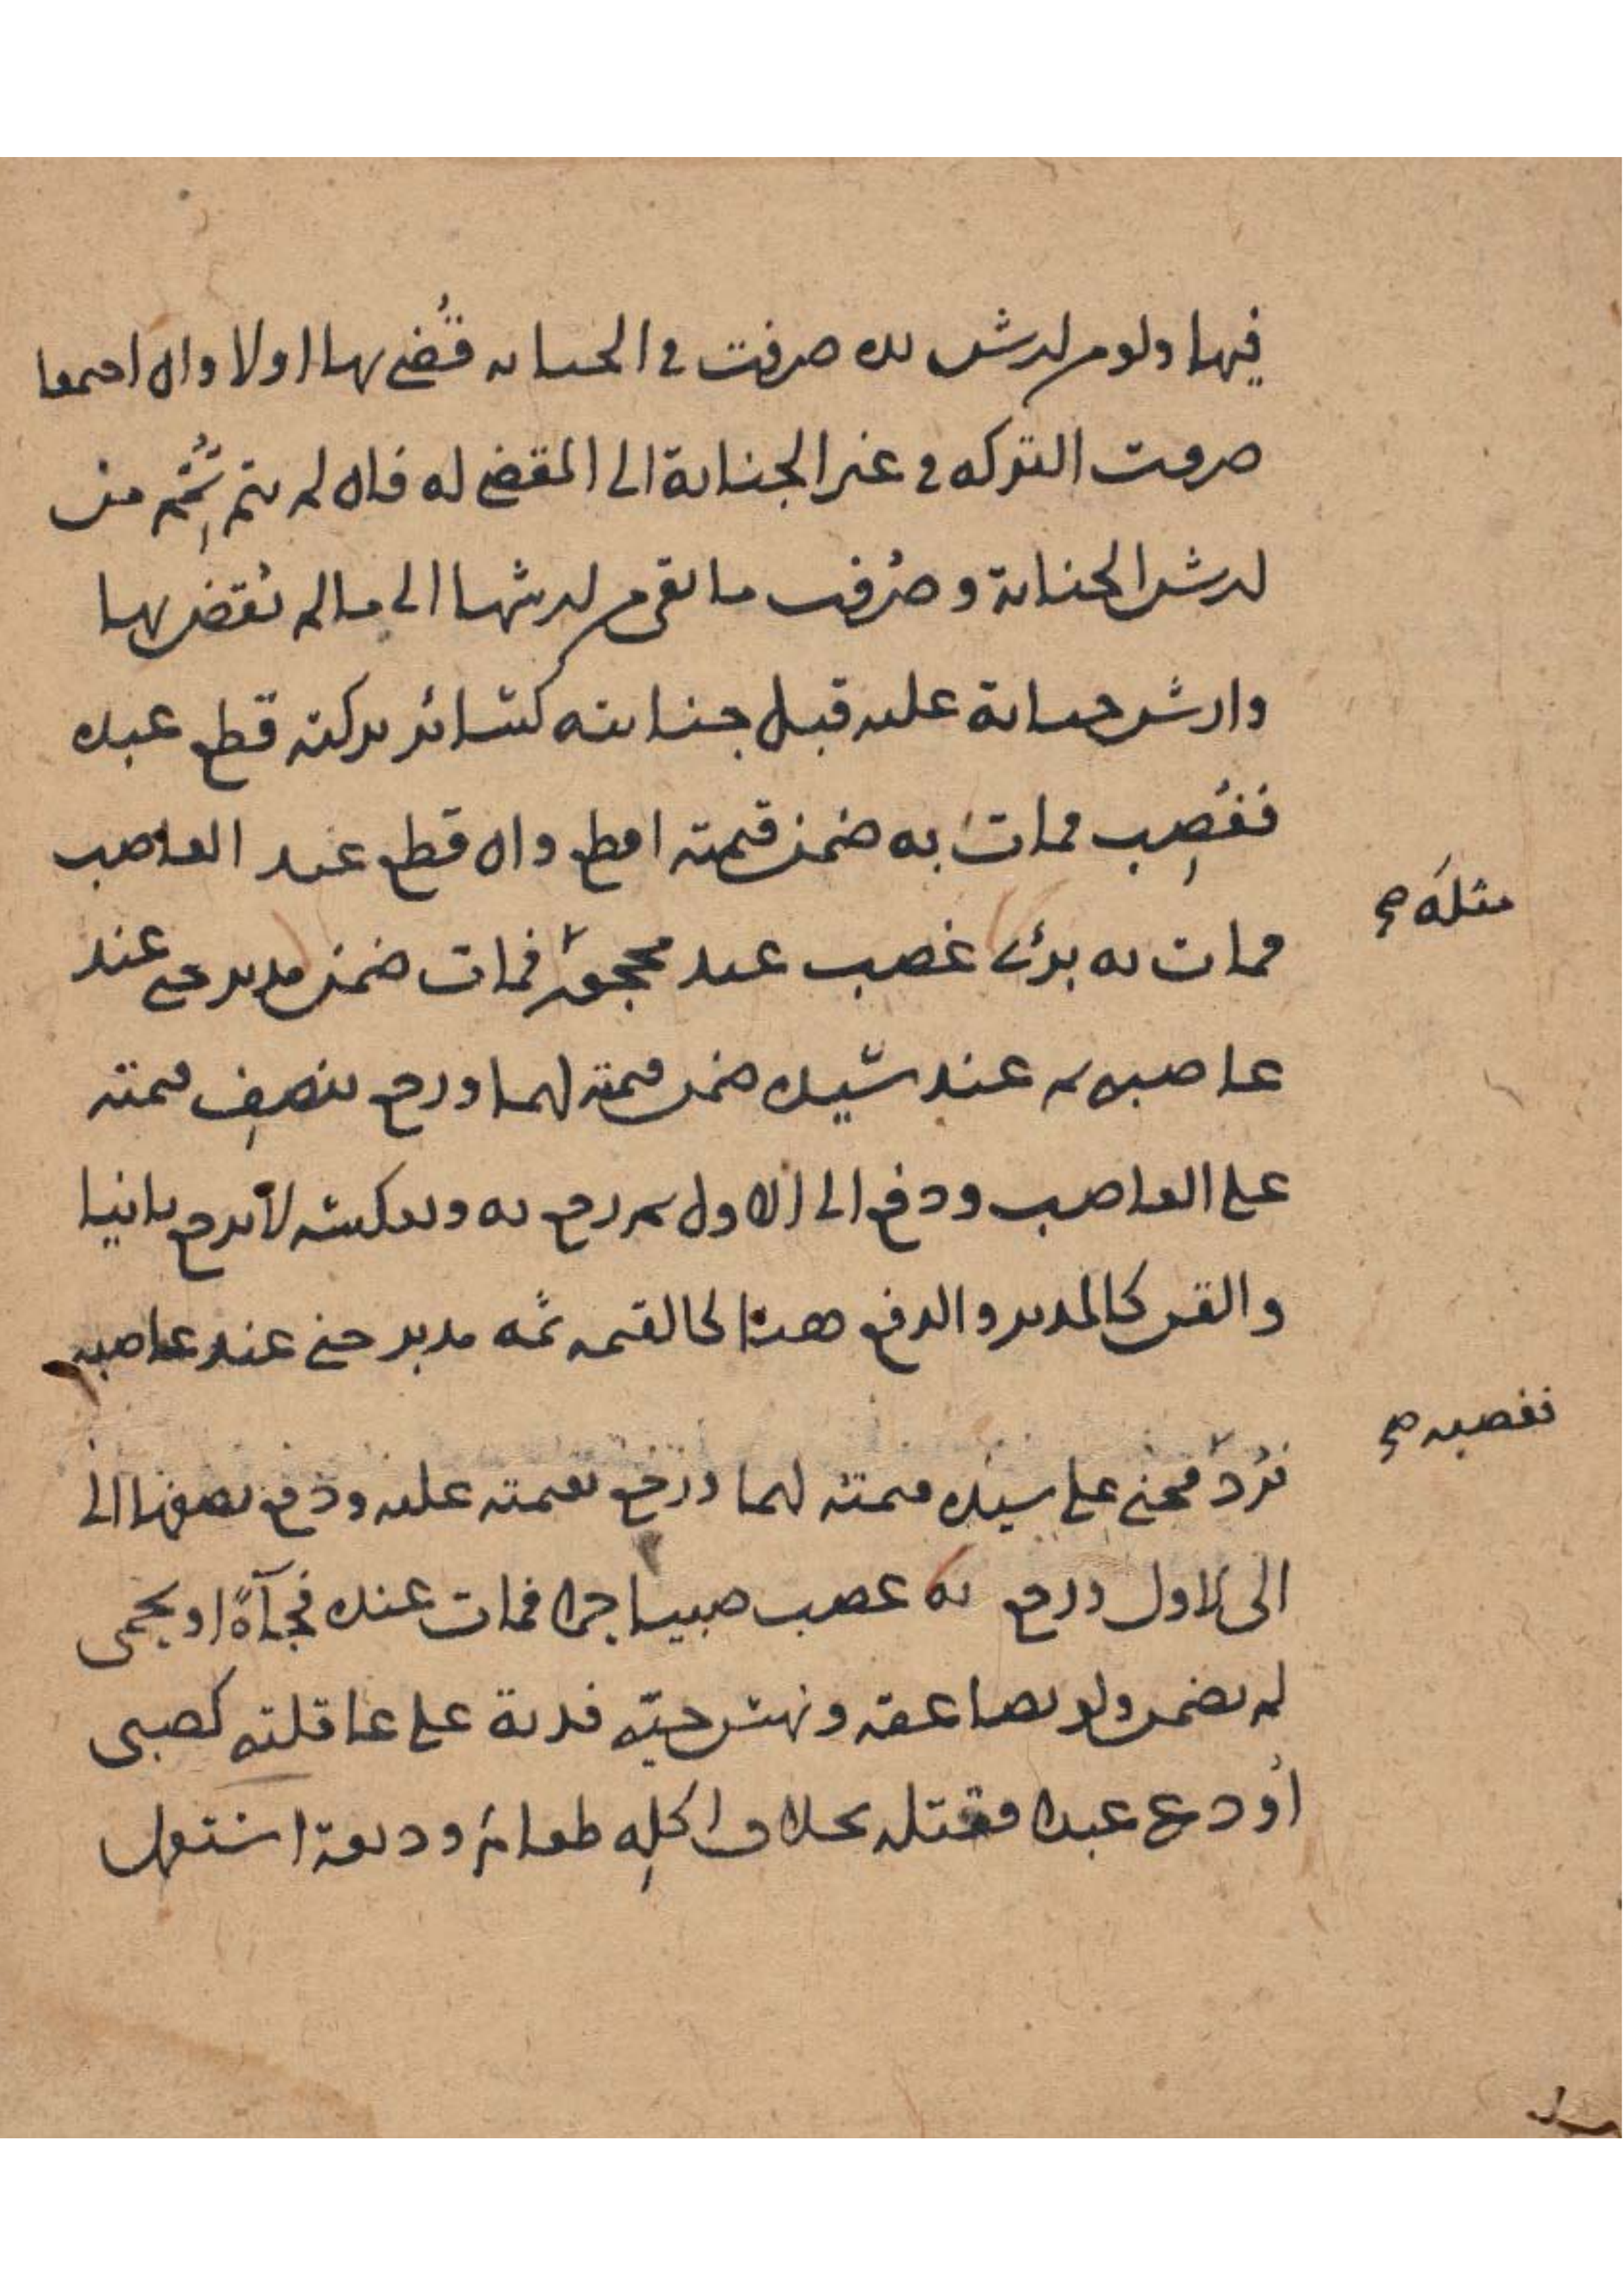 فيها ولو من ارش يده صرفت في الجناية قضي بها اولا وان اجتمعا
صرفت التركة في غير الجناية الى المقضي له فان لم يتم تُمّم من
ارش الجناية وصُرف ما بقي من ارشها الى ما لم يُقض بها
وارش جناية عليه قبل جنايته كسائر تركته قطع عبده
فغُصِب فمات به ضمن قيمته اقطع وان قطع عند الغاصب
فمات به برئ غصب عبد محجور فمات ضمن مدبر جنى عند
مثله صح
غاصبه ثم عند سيّده ضمن قيمته لهما ورجع بنصف قيمته
على الغاصب ودفع الى الاول ثم رجع به وبعكسه لا يرجع ثانيا
والقن كالمدبر والدفع هنا كالقيمة ثمه مدبر جنى عند غاصبه
فرُدّ فجنى على سيده قيمته لهما ورجع بقيمته عليه ودفع نصفها الى
فغصبه صح
الى الاول ورجع به غصب صبيا حرا فمات عنده فجآةً او بحمى
لم يضمن ولو بصاعقة ونهش حيّة فدية على عاقلته كصبي
اُودع عبدا فقتله بخلاف اكلِه طعاما وديعة استعمل